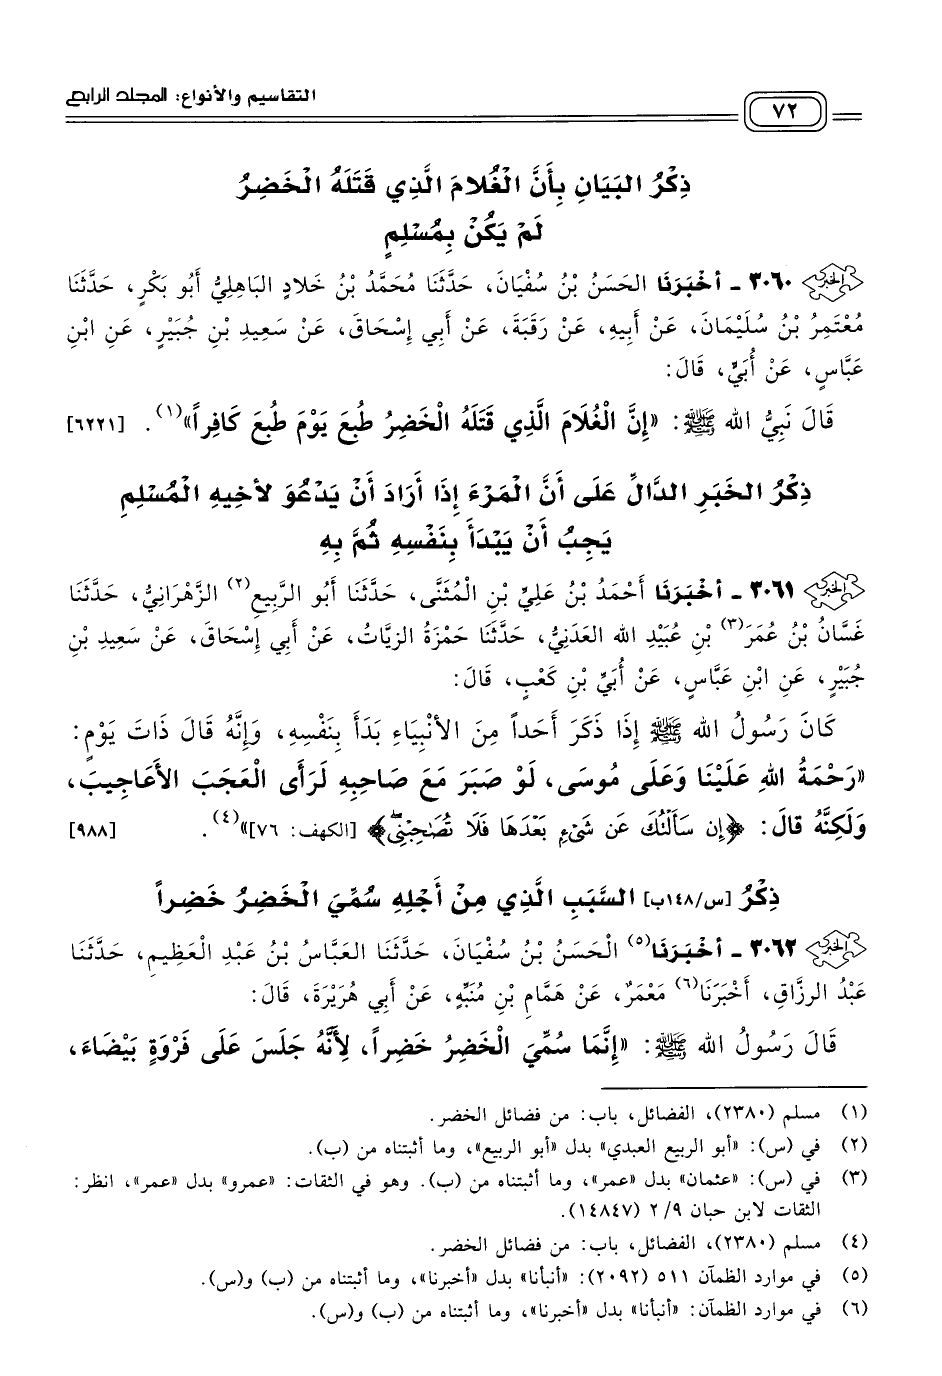 التقاسيم والأنواع: المجلد الرابع
٧٢
ذِكْرُ البَيَانِ بِأَنَّ الْغُلَامَ الَّذِي قَتَلَهُ الْخَضِرُ
لَمْ يَكُنْ بِمُسْلِمٍ
الخبر ٣٠٦٠ - أخْبَرَنَا الحَسَنُ بْنُ سُفْيَانَ، حَدَّثَنَا مُحَمَّدُ بْنُ خَلادٍ البَاهِلِيُّ أَبُو بَكْرٍ، حَدَّثَنَا
مُعْتَمِرُ بْنُ سُلَيْمَانَ، عَنْ أَبِيهِ، عَنْ رَقَبَةَ، عَنْ أَبِي إِسْحَاقَ، عَنْ سَعِيدِ بْنِ جُبَيْرٍ، عَنِ ابْنِ
عَبَّاسٍ، عَنْ أُبَيٍّ، قَالَ:
قَالَ نَبِيُّ الله ﷺ: «إِنَّ الْغُلَامَ الَّذِي قَتَلَهُ الْخَضِرُ طُبِعَ يَوْمَ طُبِعَ كَافِراً»(١). [٦٢٢١]
ذِكْرُ الخَبَرِ الدَّالِّ عَلَى أَنَّ الْمَرْءَ إِذَا أَرَادَ أَنْ يَدْعُوَ لأخِيهِ الْمُسْلِمِ
يَجِبُ أَنْ يَبْدَأَ بِنَفْسِهِ ثُمَّ بِهِ
الخبر ٣٠٦١ - أخْبَرَنَا أَحْمَدُ بْنُ عَلِيِّ بْنِ الْمُثَنَّى، حَدَّثَنَا أَبُو الرَّبِيعِ(٢) الزَّهْرَانِيُّ، حَدَّثَنَا
غَسَّانُ بْنُ عُمَرَ(٣) بْنِ عُبَيْدِ الله العَدَنِيُّ، حَدَّثَنَا حَمْزَةُ الزيَّاتُ، عَنْ أَبِي إِسْحَاقَ، عَنْ سَعِيدِ بْنِ
جُبَيْرٍ، عَنِ ابْنِ عَبَّاسٍ، عَنْ أُبَيِّ بْنِ كَعْبٍ، قَالَ:
كَانَ رَسُولُ الله ﷺ إِذَا ذَكَرَ أَحَداً مِنَ الأَنْبِيَاءِ بَدَأَ بِنَفْسِهِ، وَإِنَّهُ قَالَ ذَاتَ يَوْمٍ:
«رَحْمَةُ اللهِ عَلَيْنَا وَعَلَى مُوسَى، لَوْ صَبَرَ مَعَ صَاحِبِهِ لَرَأَى الْعَجَبَ الأَعَاجِيبَ،
وَلَكِنَّهُ قالَ: ﴿إِن سَأَلْتُكَ عَن شَىْءٍ بَعْدَهَا فَلَا تُصَٰحِبْنِىۖ﴾ [الكهف: ٧٦]»(٤). [٩٨٨]
ذِكْرُ [س/١٤٨ب] السَّبَبِ الَّذِي مِنْ أَجْلِهِ سُمِّيَ الْخَضِرُ خَضِراً
الخبر ٣٠٦٢ - أخْبَرَنَا(٥) الْحَسَنُ بْنُ سُفْيَانَ، حَدَّثَنَا العَبَّاسُ بْنُ عَبْدِ الْعَظِيمِ، حَدَّثَنَا
عَبْدُ الرزَّاقِ، أَخْبَرَنَا(٦) مَعْمَرٌ، عَنْ هَمَّامِ بْنِ مُنَبِّهٍ، عَنْ أَبِي هُرَيْرَةَ، قَالَ:
قَالَ رَسُولُ الله ﷺ: «إِنَّمَا سُمِّيَ الْخَضِرُ خَضِراً، لِأَنَّهُ جَلَسَ عَلَى فَرْوَةٍ بَيْضَاءَ،
(١) مسلم (٢٣٨٠)، الفضائل، باب: من فضائل الخضر.
(٢) في (س): «أبو الربيع العبدي» بدل «أبو الربيع»، وما أثبتناه من (ب).
(٣) في (س): «عثمان» بدل «عمر»، وما أثبتناه من (ب). وهو في الثقات: «عمرو» بدل «عمر»، انظر:
الثقات لابن حبان ٩/ ٢ (١٤٨٤٧).
(٤) مسلم (٢٣٨٠)، الفضائل، باب: من فضائل الخضر.
(٥) في موارد الظمآن ٥١١ (٢٠٩٢): «أنبأنا» بدل «أخبرنا»، وما أثبتناه من (ب) و(س).
(٦) في موارد الظمآن: «أنبأنا» بدل «أخبرنا»، وما أثبتناه من (ب) و(س).